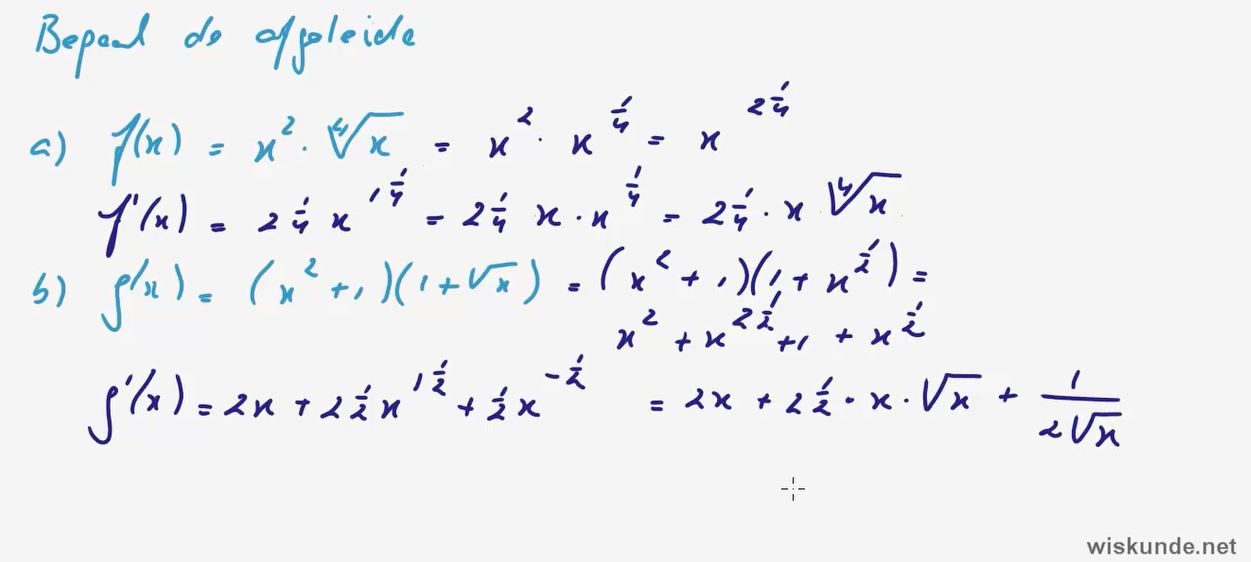 Bepaal de afgeleide
a) f(x) = x² · ∜x = x² · x^{1/4} = x^{2 1/4}
f'(x) = 2 1/4 x^{1 1/4} = 2 1/4 x · x^{1/4} = 2 1/4 · x ∜x
b) g(x) = (x² + 1)(1 + √x) = (x² + 1)(1 + x^{1/2}) =
x² + x^{2 1/2} + 1 + x^{1/2}
g'(x) = 2x + 2 1/2 x^{1 1/2} + 1/2 x^{-1/2} = 2x + 2 1/2 · x · √x + 1/(2√x)
wiskunde.net